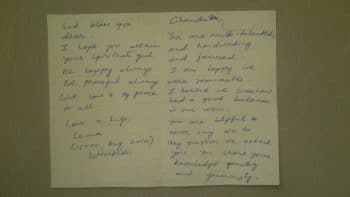 God bless you
dear.
I hope you attain
your spiritual goal
Be happy always
Be peaceful always
love & peace
to all
Love & hugs
(YTTC, Aug 2016)
Uttarkashi
Chandrika,
You are multi-talented
and hardworking
and focused.
I am happy we
were roommates
I believe we somehow
had a good balance
in our room.
You are helpful &
never say no to
any question we asked
you. You share your
knowledge